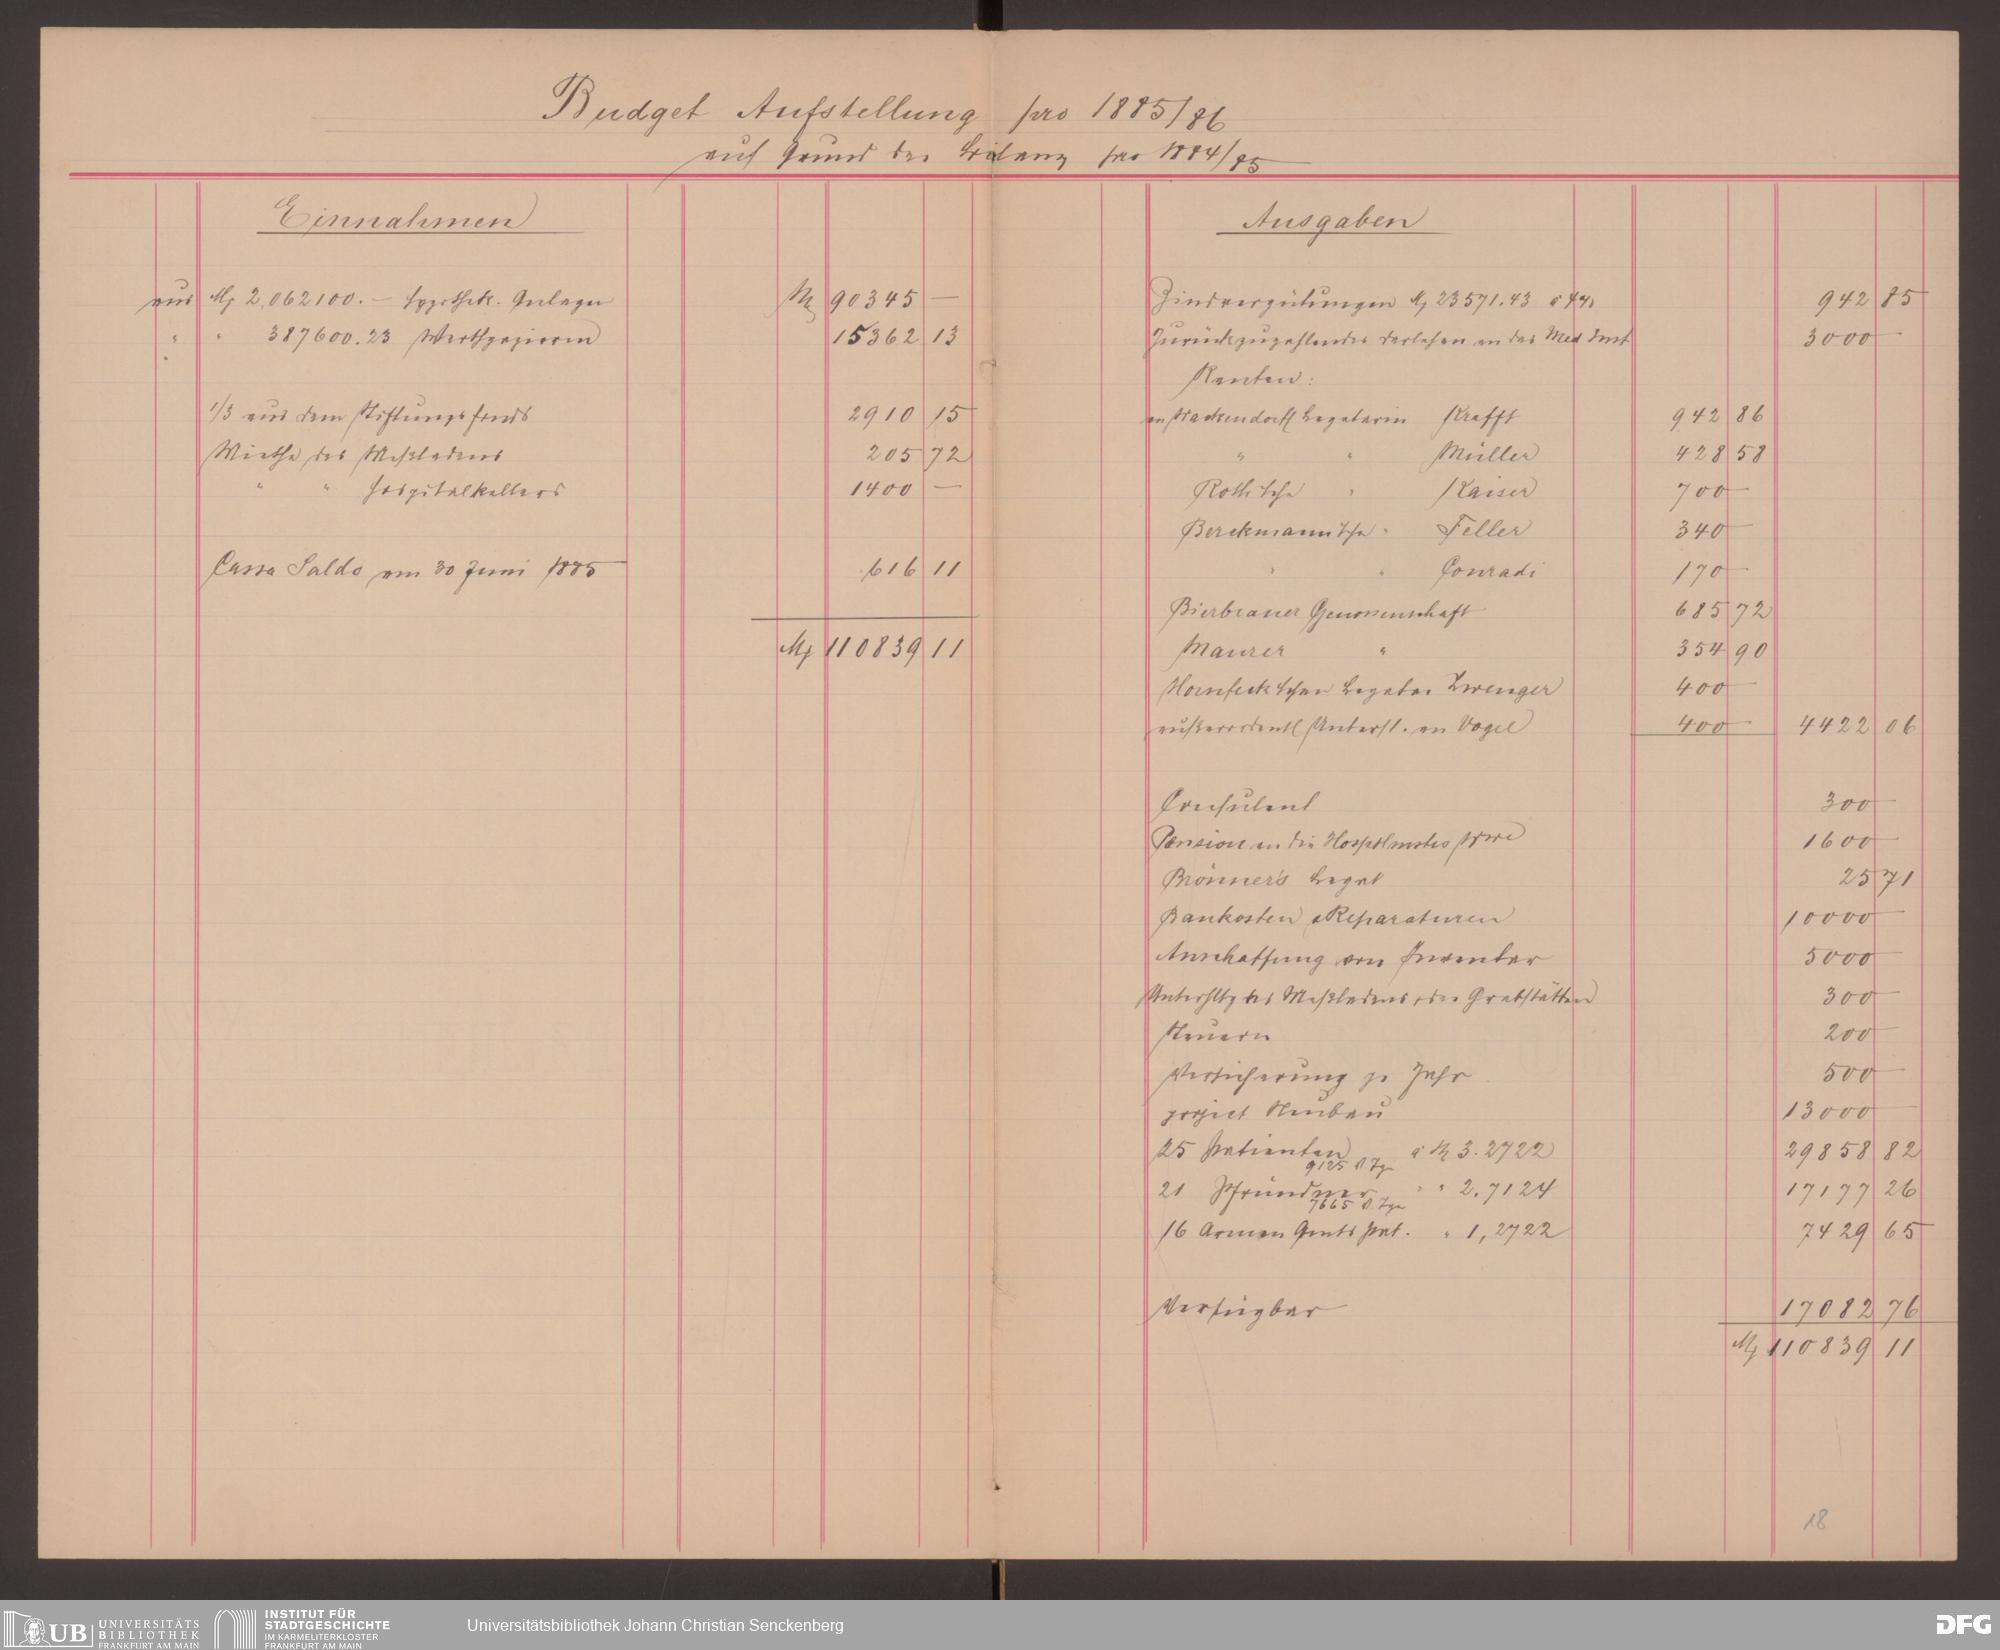 Budget Aufstellung pro 1885/86
auf Grund der Bilanz pro 1884/85
Einnahmen
aus M 2,062100.— Hypothek. Anlagen M 90345 —
" " 387600.23 Werthpapieren 15362 13
1/3 aus dem Stiftungsfonds 2910 15
Miethe des Meßladens 205 72
" " Hospitalkellers 1400 —
Cassa Saldo am 30 Juni 1885 616 11
M 110839 11
Ausgaben
Zinsvergütungen M 23571.43 à 4% 942 85
Zurückzuzahlendes Darlehen an das Med Inst 3000 —
Renten:
an Legatarin Krafft 942 86
" " Müller 428 58
Roth'sche " Kaiser 700 —
Berckmann'sche " Feller 340 —
" " Conradi 170 —
Bierbrauer Genossenschaft 685 72
Maurer " 354 90
Hornfeck'schen Legates Zwenger 400 —
außerordentl Unterst. an Vogel 400 — 4422 06
Consulent 300 —
Pension an die Wwe 1600 —
Brönner's Legat 25 71
Baukosten & Reparaturen 10000 —
Anschaffung von Inventar 5000 —
Unterhltg des Meßladens & der Grabstätten 300 —
Steuern 200 —
Versicherung pr Jahr 500 —
project Neubau 13000 —
25 Patienten à M 3.2722 29858 82
9125 V. Tge
21 Pfründner " " 2.7124 17177 26
7665 V. Tge
16 Armen Amts Pat. " 1,2722 7429 65
Verfügbar 17082 76
M 110839 11
18
UB UNIVERSITÄTS
BIBLIOTHEK
FRANKFURT AM MAIN
INSTITUT FÜR
STADTGESCHICHTE
IM KARMELITERKLOSTER
FRANKFURT AM MAIN
Universitätsbibliothek Johann Christian Senckenberg
DFG